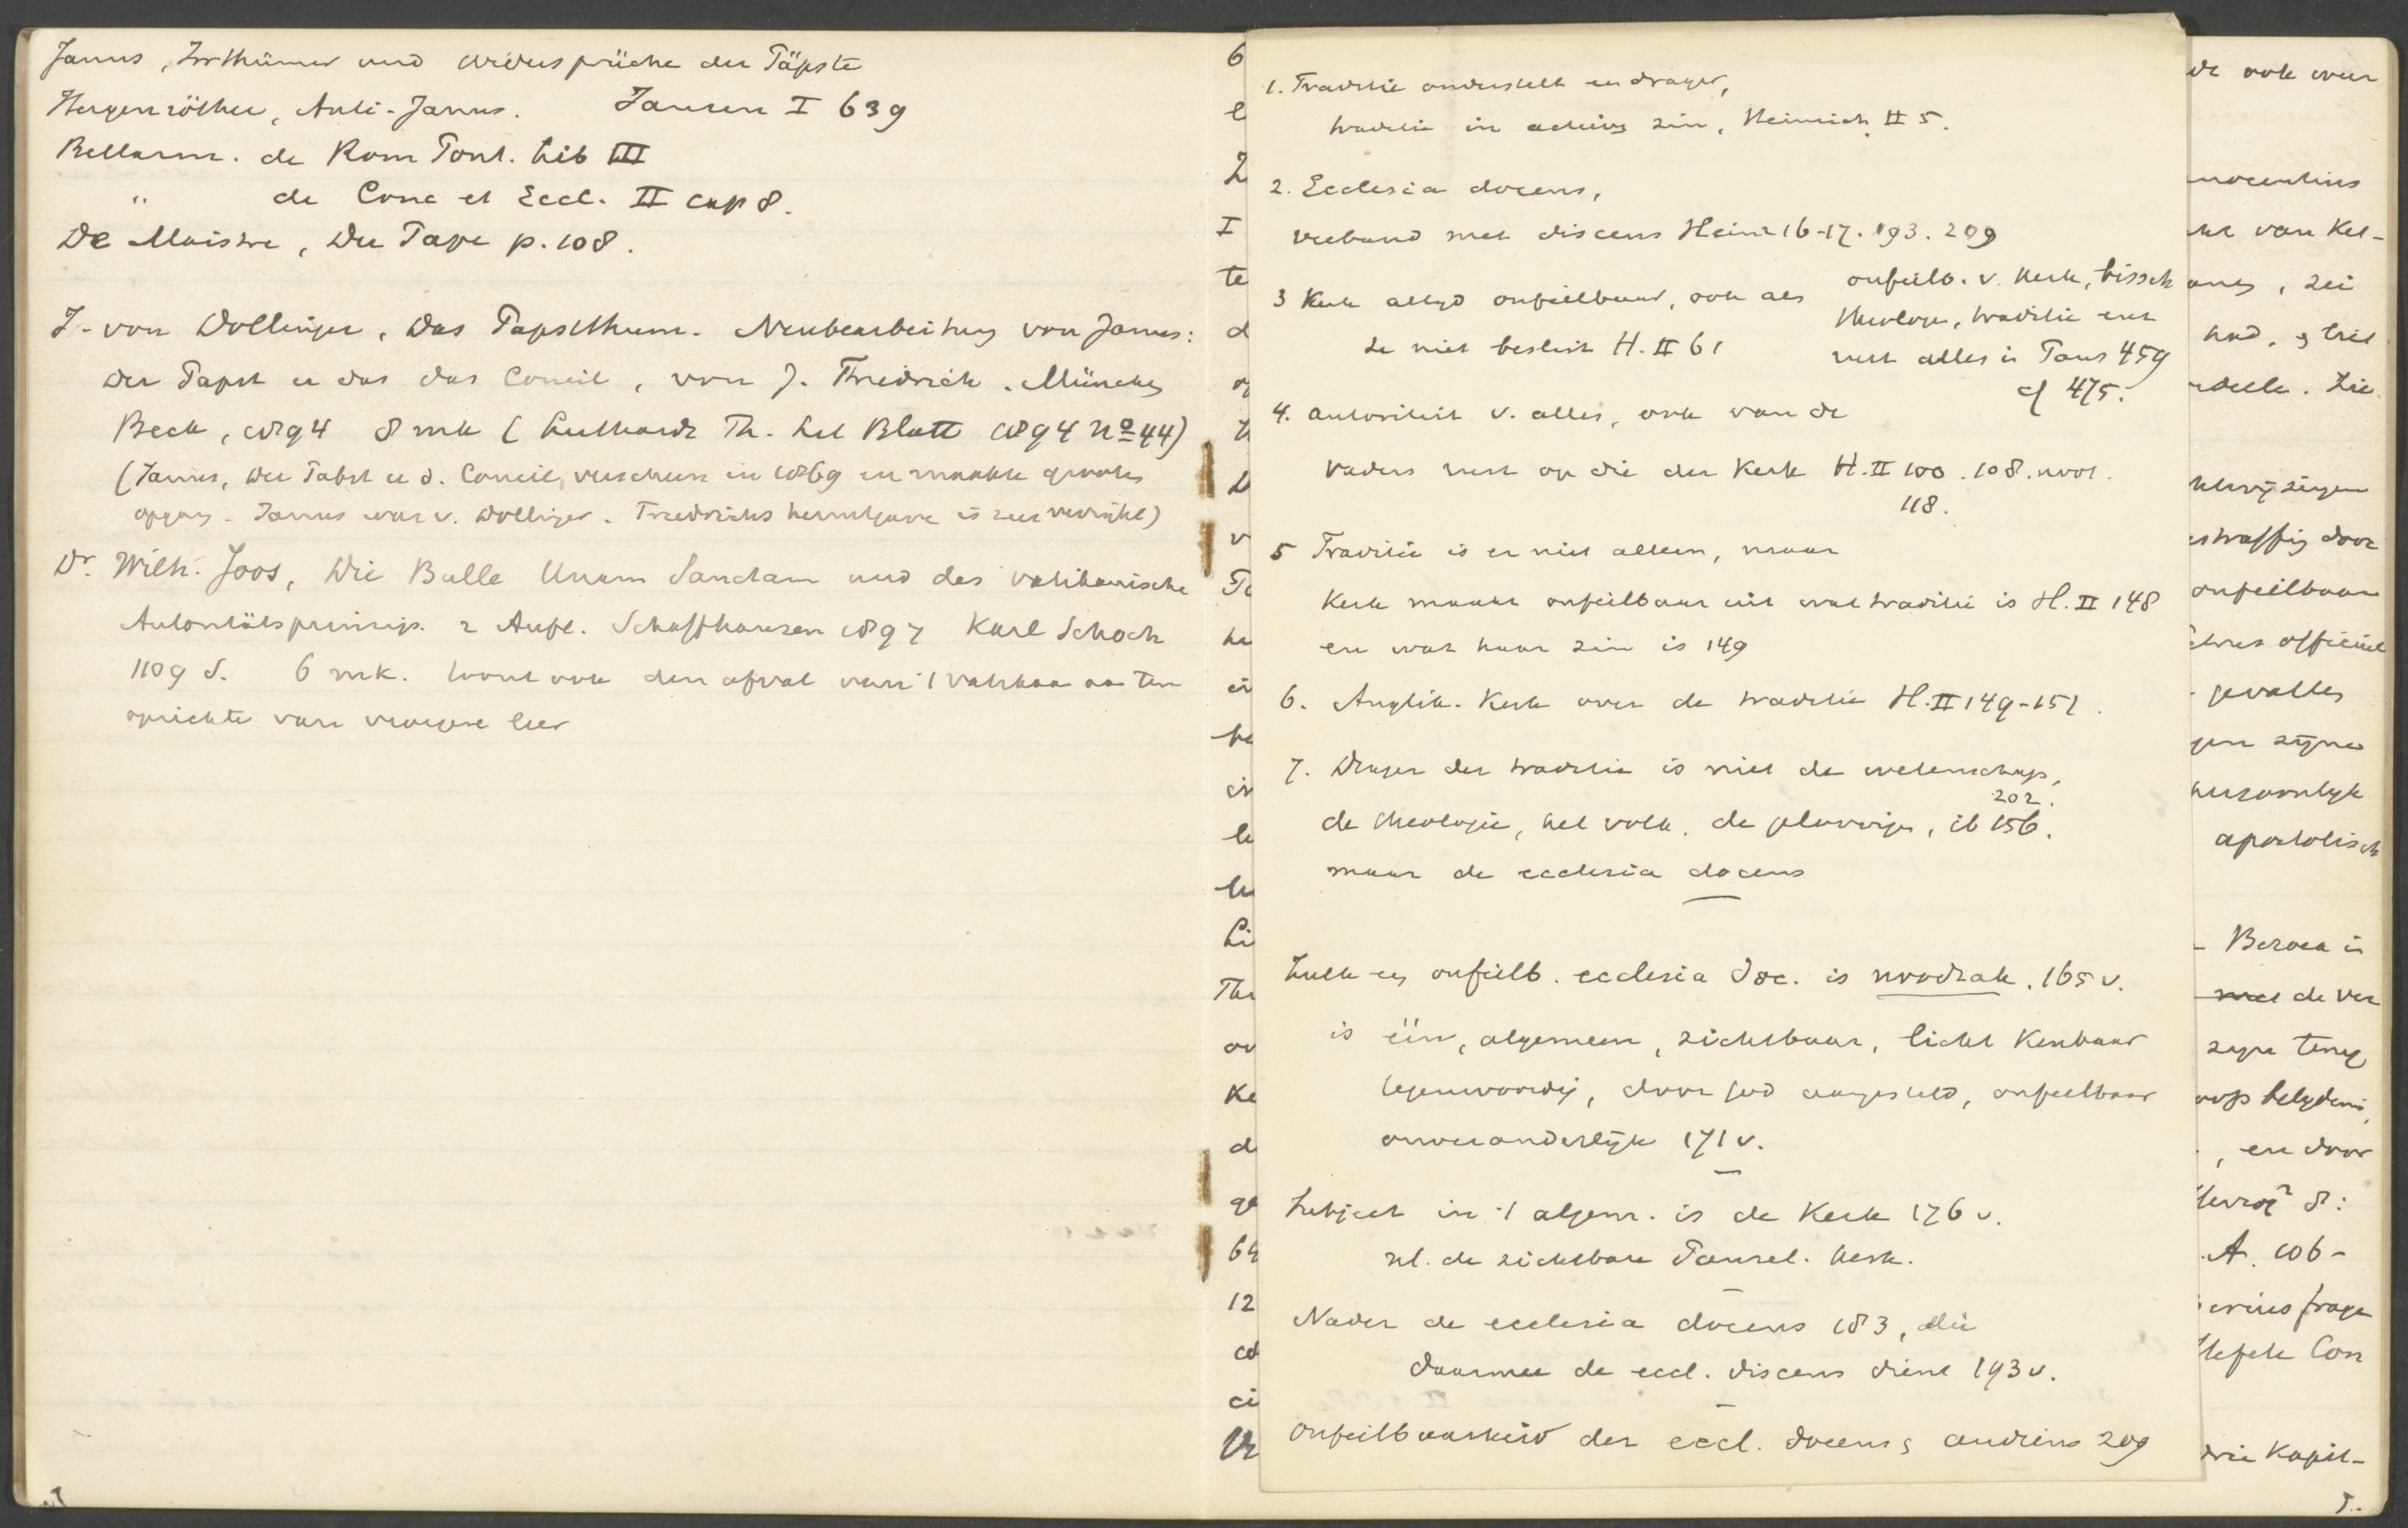 Janus, Irrthümer und Widersprüche der Päpste
Hergenröther, Anti-Janus. Jansen I 639
Bellarm. de Rom Pont. lib III
" de Conc et Eccl. II cap 8.
De Maistre, Du Pape p. 108.
J. von Döllinger, Das Papstthum. Neubearbeitung von Janus:
Der Papst u das das Concil, von J. Friedrich. München
Beck, 1894 8 mk (Luthardt Th. Lit Blatt 1894 No 44)
(Janus, der Pabst u d. Concil, verscheen in 1869 en maakte grooten
opgang. Janus was v. Döllinger. Friedrichs heruitgave is zeer verrijkt)
Dr. Wilh. Joos, Die Bulle Unam Sanctam und das vatikanische
Autoritätsprinzip. 2 Aufl. Schaffhausen 1897 Karl Schoch
1109 S. 6 mk. toont ook den afval van 't Vatikaan aan ten
opzichte van vroegere leer
1. Traditie onderstelt een drager,
traditie in actieven zin, Heinrich II 5.
2. Ecclesia docens,
verband met discens Heinr 16-17. 193. 209
3 Kerk altijd onfeilbaar, ook als
ze niet beslist H. II 61
onfeilb. v. kerk, bissch
theologen, traditie enz
rust alles in Paus 459
cf 475.
4. autoriteit v. alles, ook van de
vaders rust op die der Kerk H. II 100. 108. noot.
118.
5 Traditie is er niet alleen, maar
Kerk maakt onfeilbaar uit wat traditie is H. II 148
en wat haar zin is 149
6. Anglik. Kerk over de traditie H. II 149-151.
7. Drager der traditie is niet de wetenschap,
202.
de theologie, het volk, de geloovigen, ib 156.
maar de ecclesia docens
Zulk een onfeilb. ecclesia doc. is noodzak. 165 v.
is één, algemeen, zichtbaar, licht kenbaar
tegenwoordig, door God aangesteld, onfeilbaar
onveranderlijk 171 v.
Subject in 't algem. is de Kerk 176 v.
nl. de zichtbare Pausel. kerk.
Nader de ecclesia docens 183, die
daarmee de eccl. discens dient 193 v.
Onfeilbaarheid der eccl. docens & audiens 209